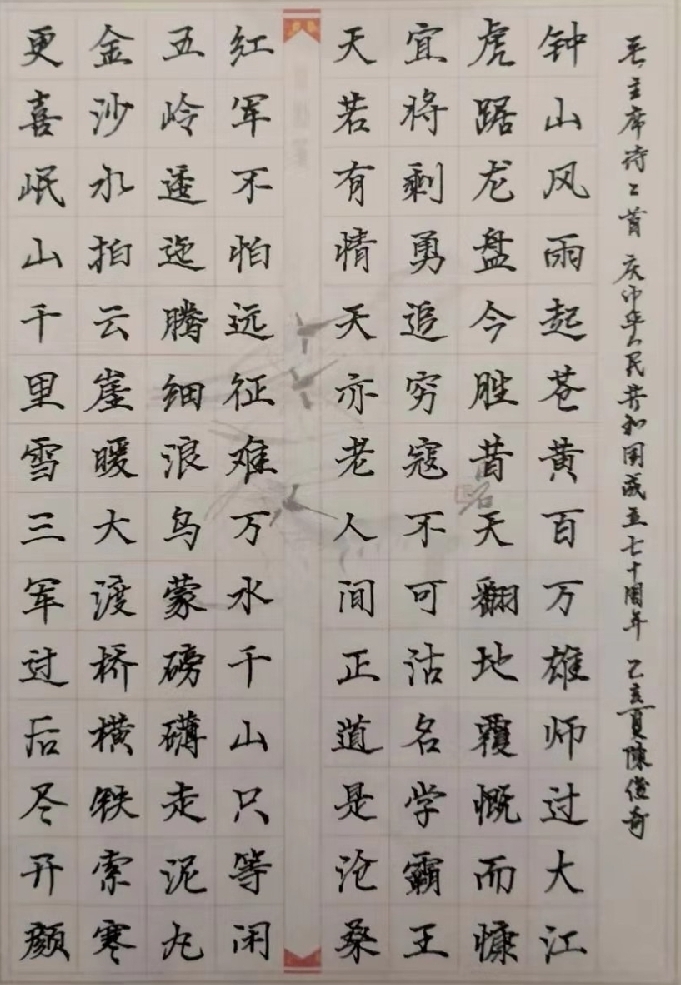 毛主席诗二首 庆中华人民共和国成立七十周年 己亥夏陳俊奇
钟山风雨起苍黄百万雄师过大江
虎踞龙盘今胜昔天翻地覆慨而慷
宜将剩勇追穷寇不可沽名学霸王
天若有情天亦老人间正道是沧桑
红军不怕远征难万水千山只等闲
五岭逶迤腾细浪乌蒙磅礴走泥丸
金沙水拍云崖暖大渡桥横铁索寒
更喜岷山千里雪三军过后尽开颜